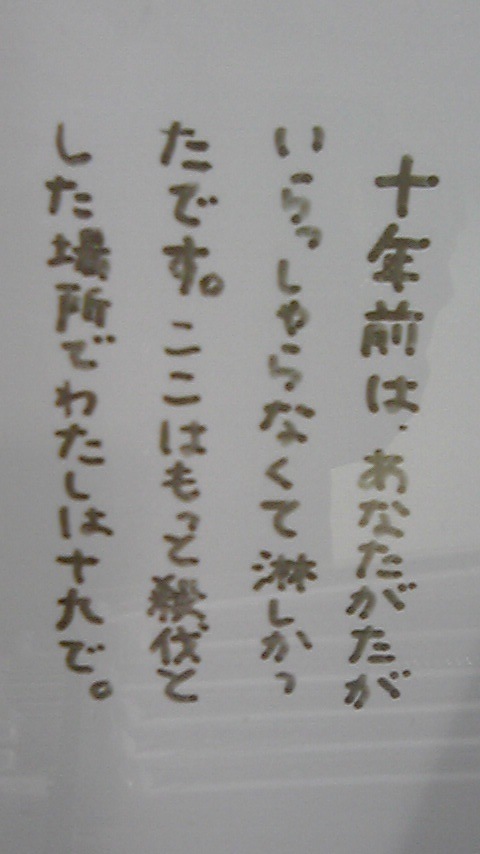 十年前は、あなたがたが
いらっしゃらなくて淋しかっ
たです。ここはもっと殺伐と
した場所でわたしは十九で。